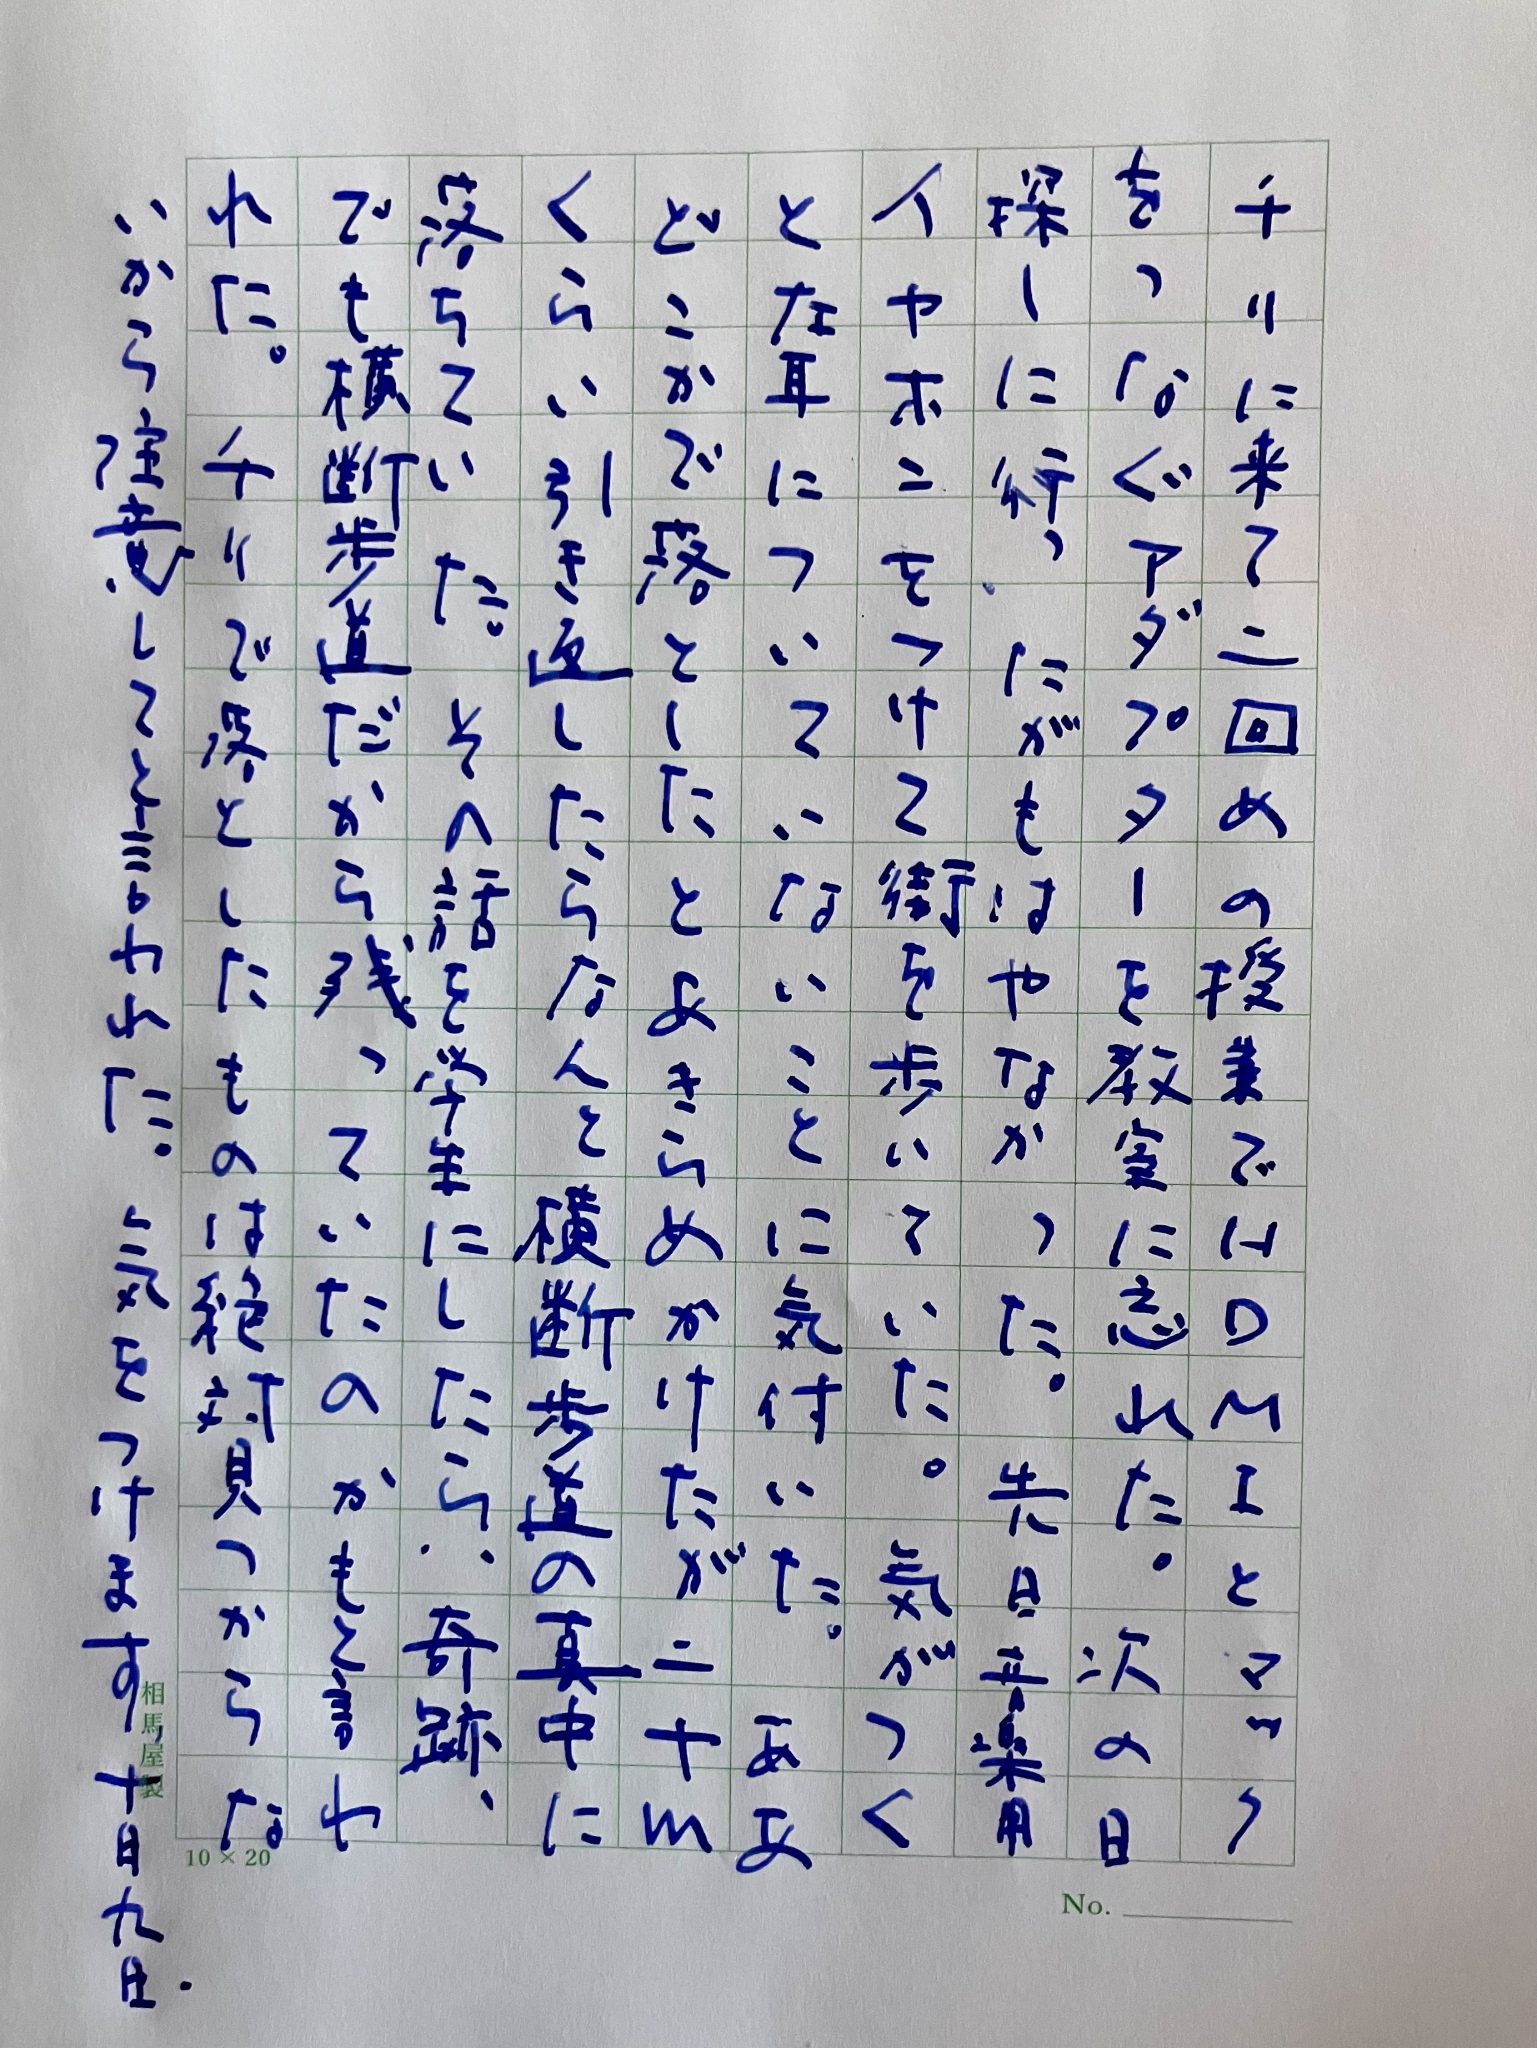 チリに来て二回めの授業でHDMIとマック
をつなぐアダプターを教室に忘れた。次の日
探しに行ったがもはやなかった。先日音楽用
イヤホンをつけて街を歩いていた。気がつく
と左耳についていないことに気付いた。ああ
どこかで落としたとあきらめかけたが二十m
くらい引き返したらなんと横断歩道の真中に
落ちていた。その話を学生にしたら、奇跡、
でも横断歩道だから残っていたのかもと言わ
れた。チリで落としたものは絶対見つからな
いから注意してと言われた。気をつけます。十月九日.
相馬屋製
10 × 20
No.